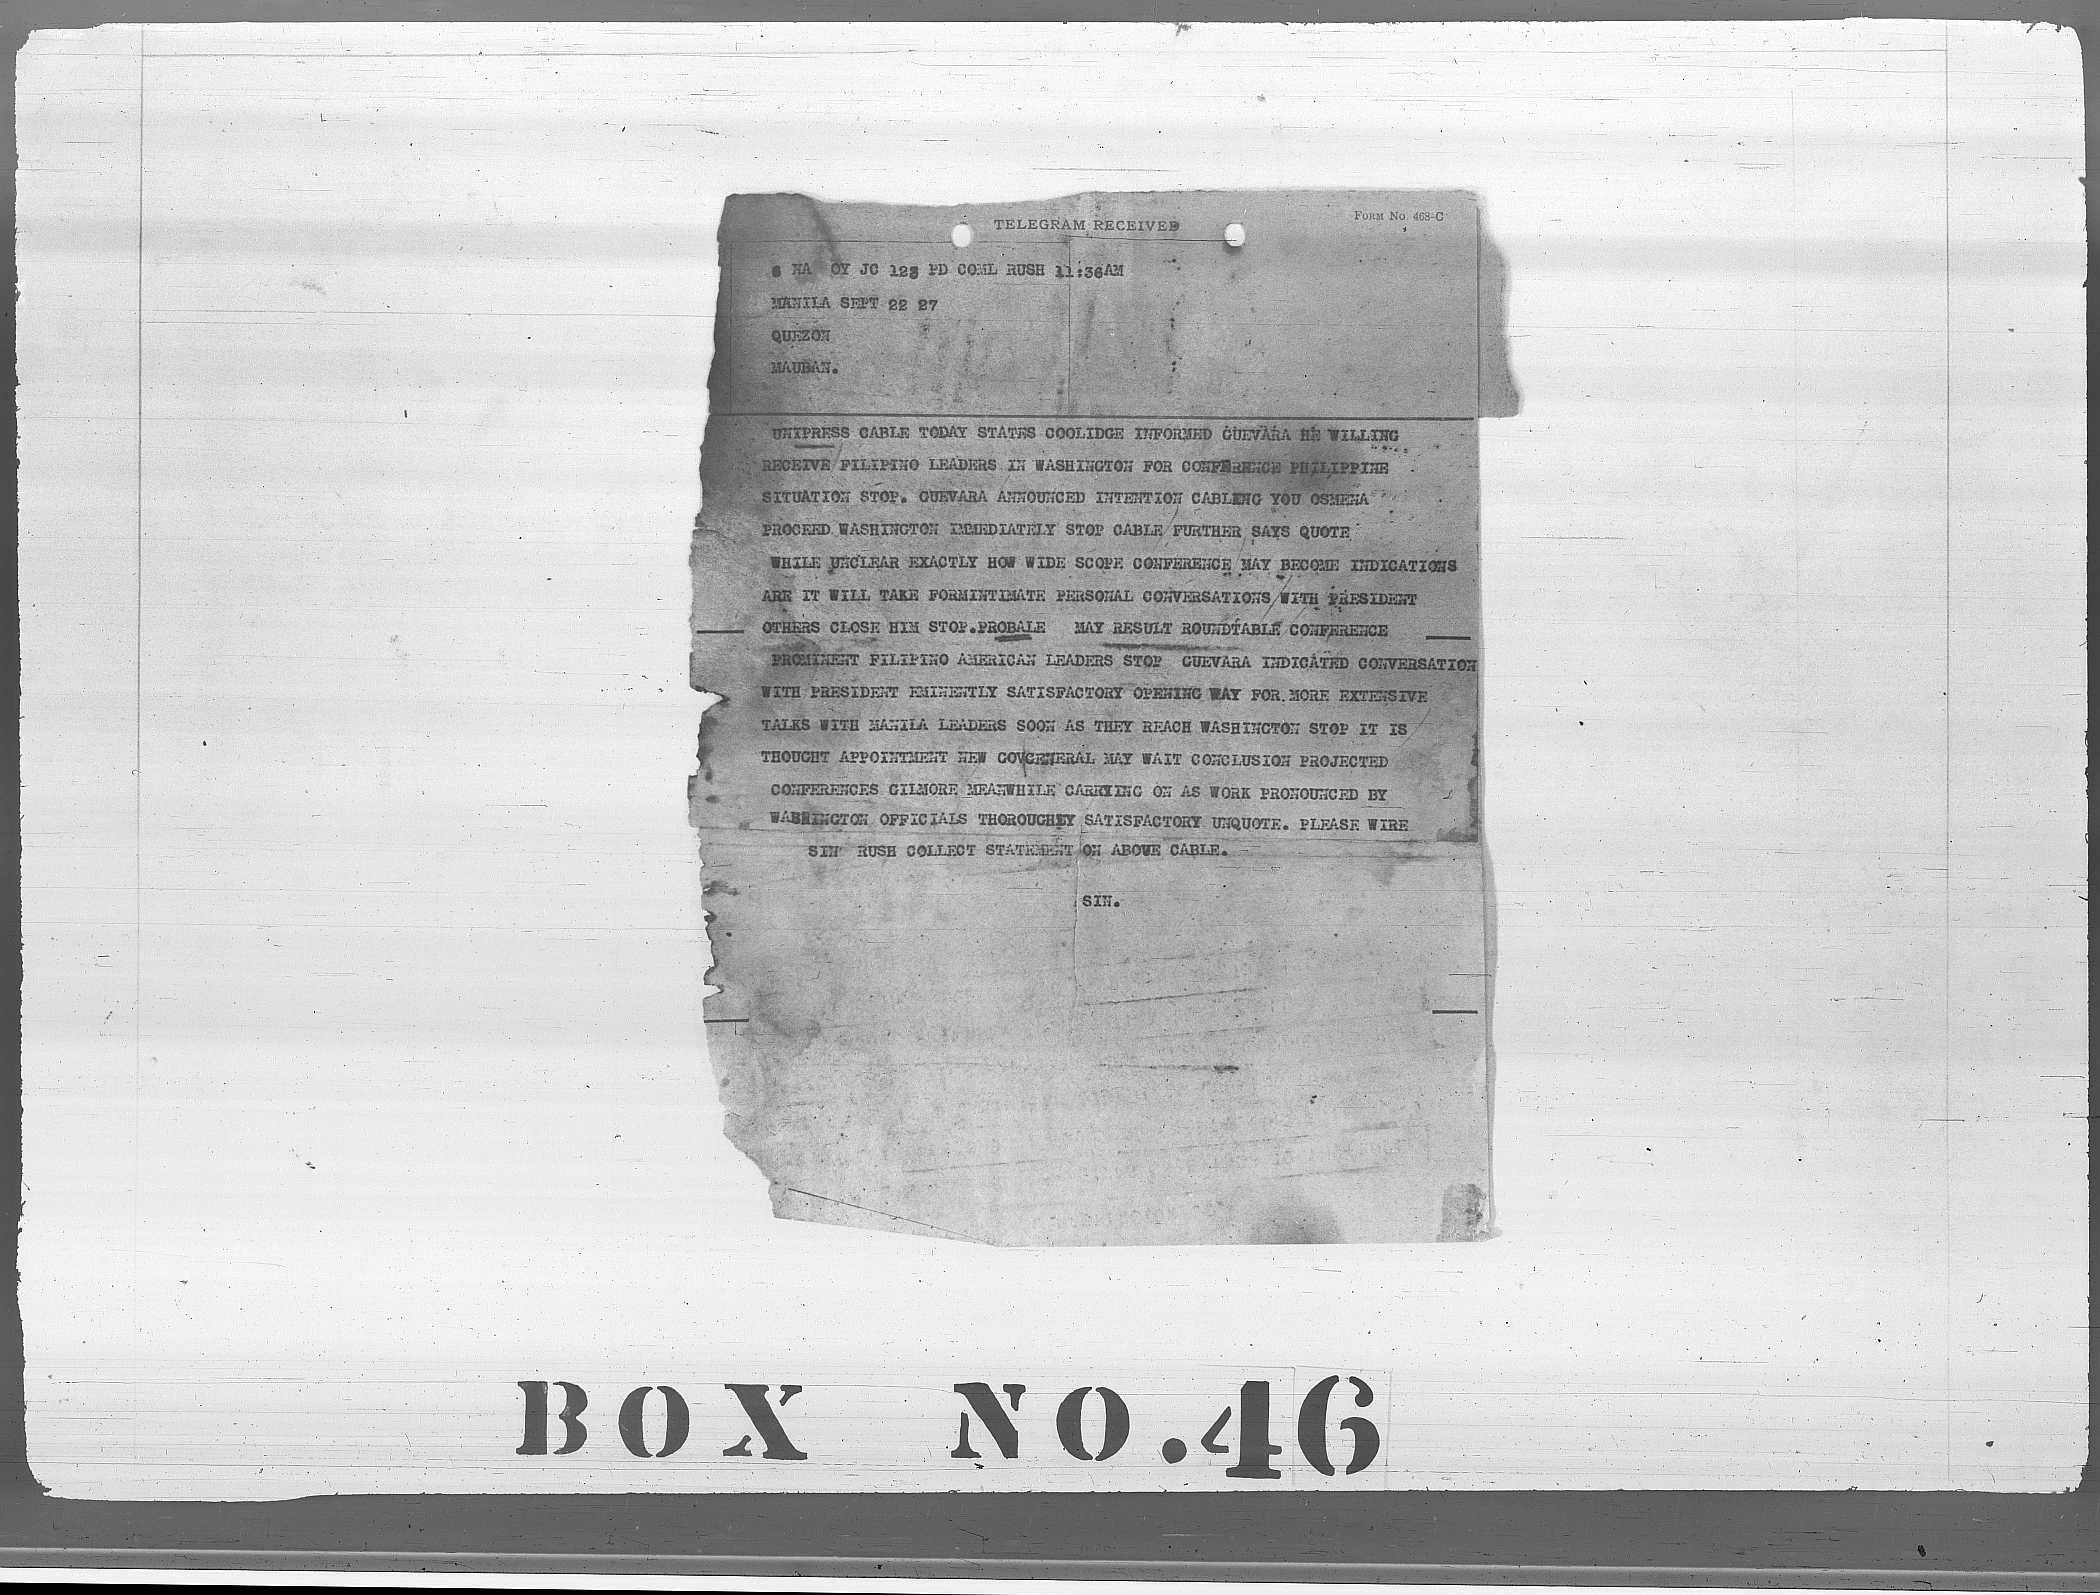 TELEGRAM RECEIVED
FORM NO. 468-C
NA OY JC 123 PD COML RUSH 11:36AM
MANILA SEPT 22 27
QUEZON
MAUBAN.
UNIPRESS CABLE TODAY STATES COOLIDGE INFORMED GUEVARA HE WILLING
RECEIVE FILIPINO LEADERS IN WASHINGTON FOR CONFERENCE PHILIPPINE
SITUATION STOP. GUEVARA ANNOUNCED INTENTION CABLING YOU OSMENA
PROCEED WASHINGTON IMMEDIATELY STOP CABLE FURTHER SAYS QUOTE
WHILE UNCLEAR EXACTLY HOW WIDE SCOPE CONFERENCE MAY BECOME INDICATIONS
ARE IT WILL TAKE FORMINTIMATE PERSONAL CONVERSATIONS WITH PRESIDENT
OTHERS CLOSE HIM STOP.PROBALE MAY RESULT ROUNDTABLE CONFERENCE
PROMINENT FILIPINO AMERICAN LEADERS STOP GUEVARA INDICATED CONVERSATION
WITH PRESIDENT EMINENTLY SATISFACTORY OPENING WAY FOR MORE EXTENSIVE
TALKS WITH MANILA LEADERS SOON AS THEY REACH WASHINGTON STOP IT IS
THOUGHT APPOINTMENT NEW GOVGENERAL MAY WAIT CONCLUSION PROJECTED
CONFERENCES GILMORE MEANWHILE CARRYING ON AS WORK PRONOUNCED BY
WASHINGTON OFFICIALS THOROUGHLY SATISFACTORY UNQUOTE. PLEASE WIRE
SIN RUSH COLLECT STATEMENT ON ABOVE CABLE.
SIN.
BOX NO.46